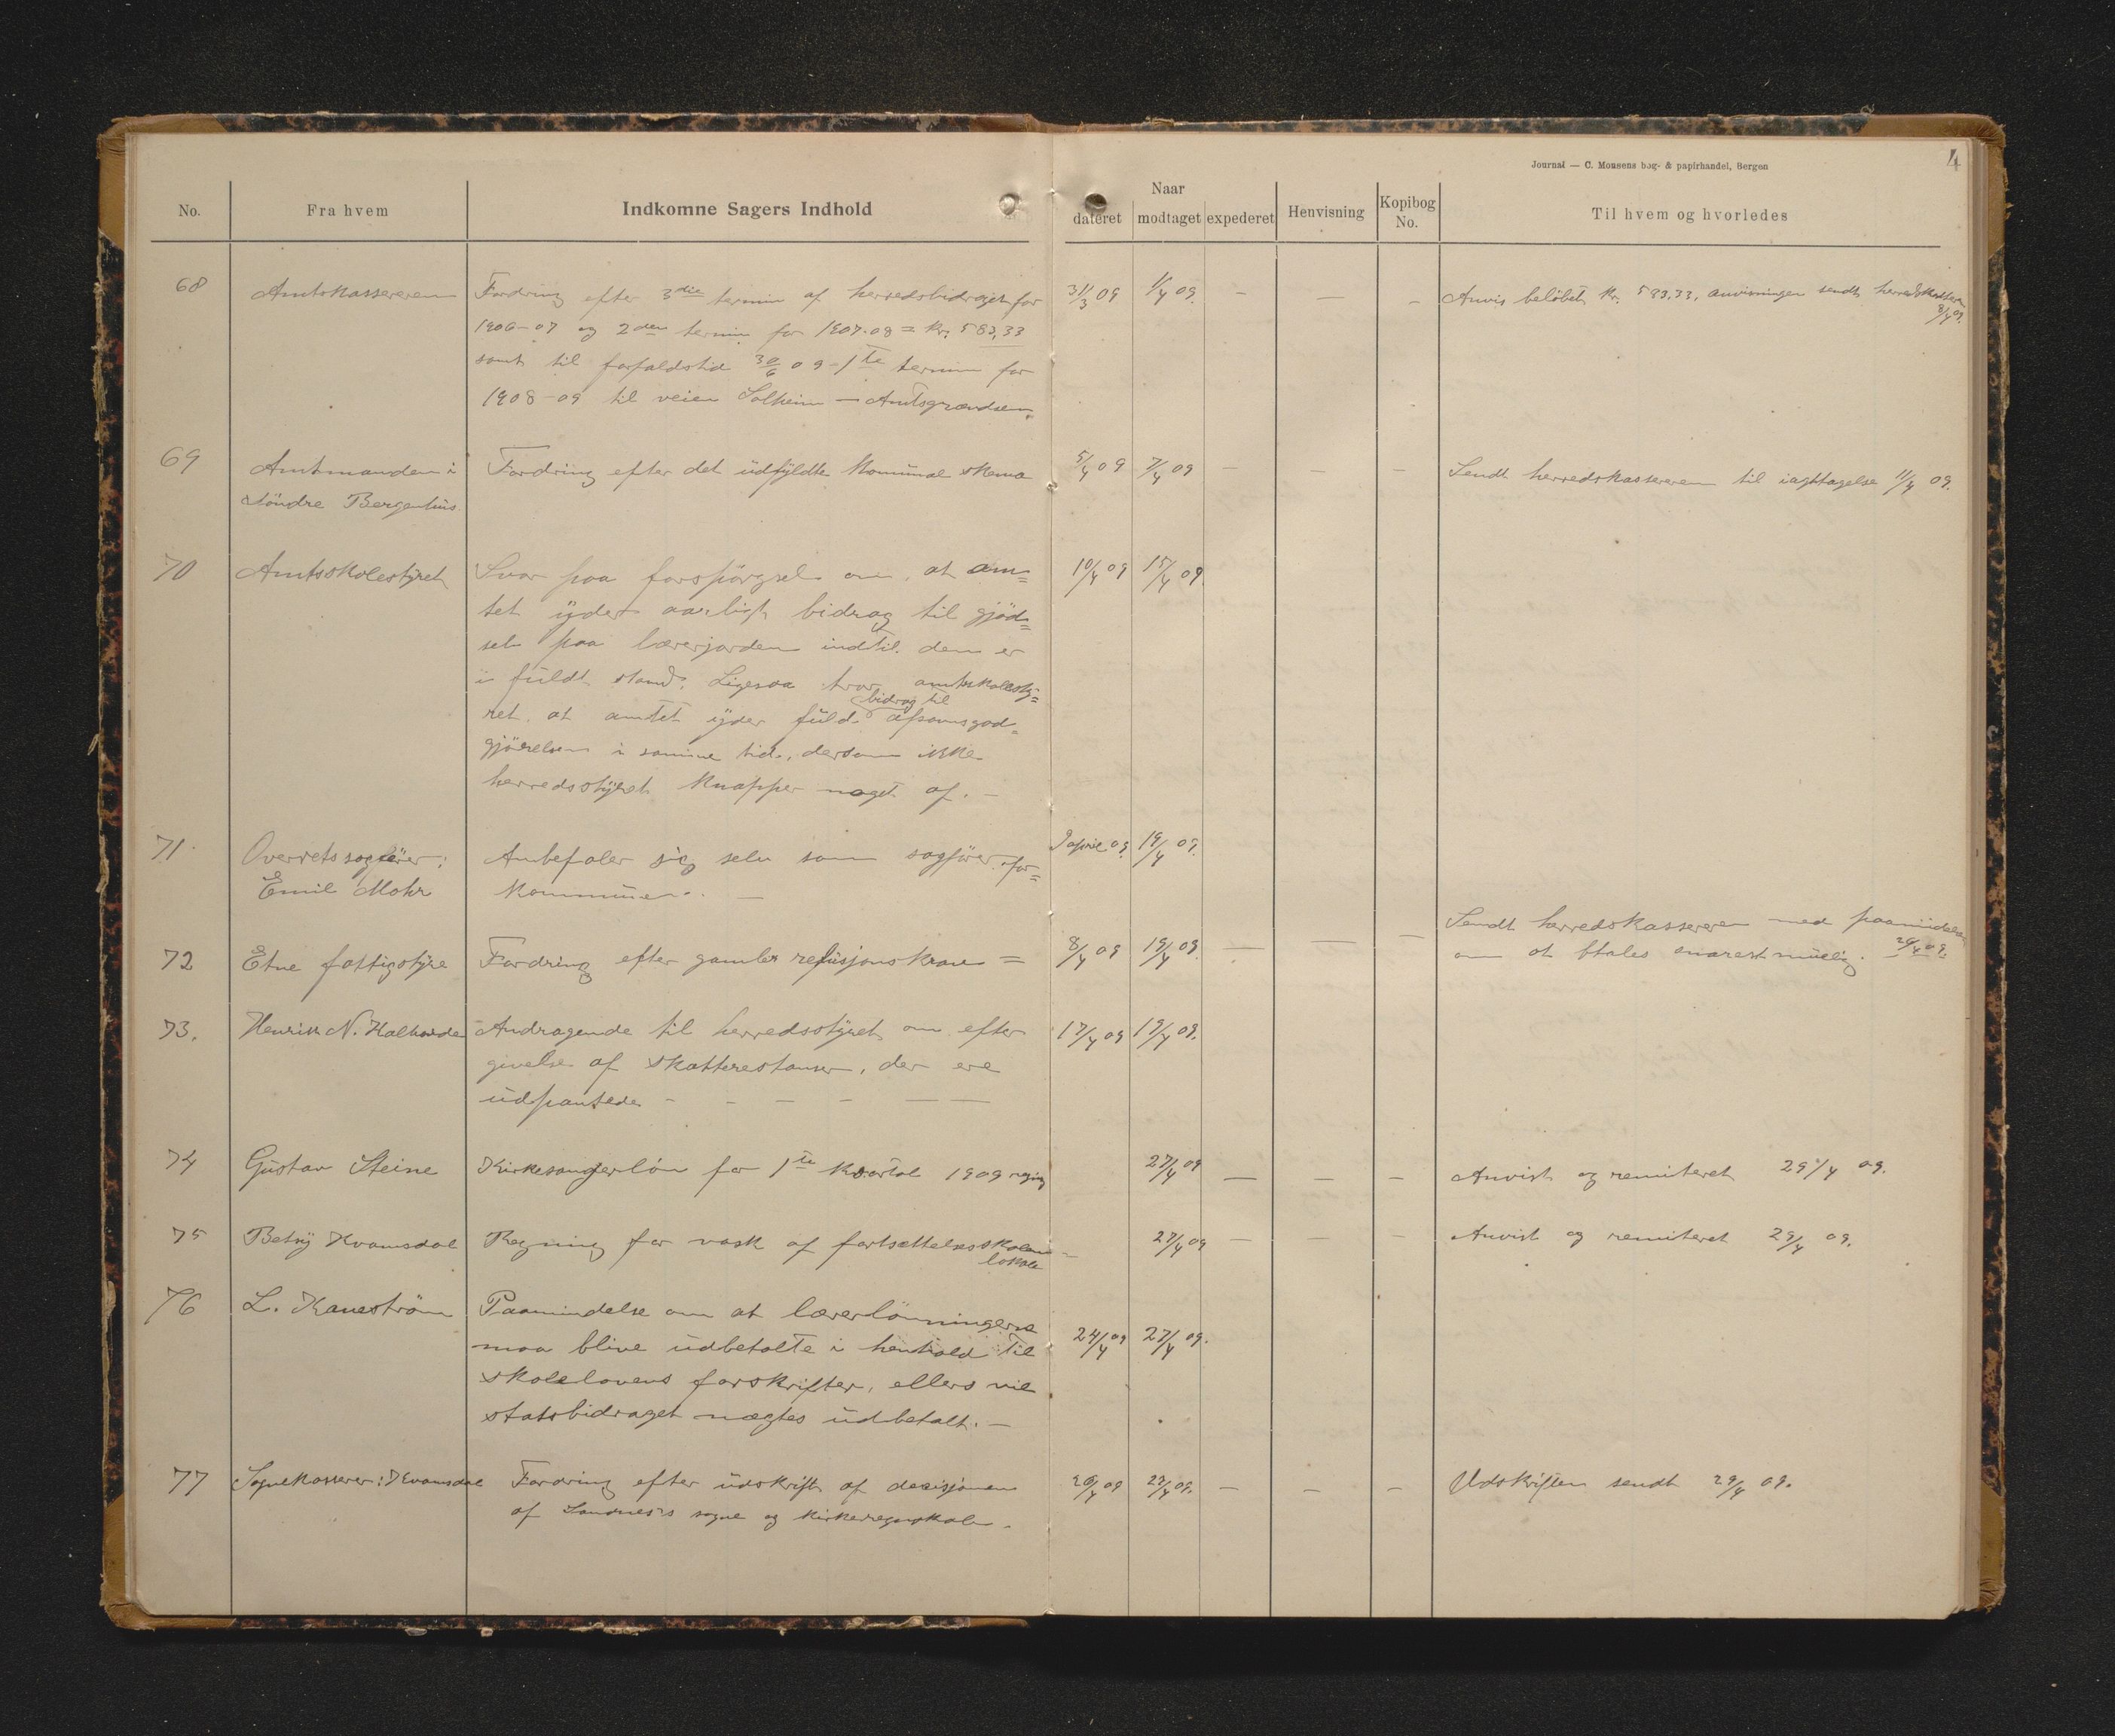 Journal — C. Monsens bog- & papirhandel, Bergen
4
No.
Fra hvem
Indkomne Sagers Indhold
Naar
dateret
modtaget
expederet
Henvisning
Kopibog
No.
Til hvem og hvorledes
68 Amtskassereren Fordring efter 3die termin af herredsbidraget for 31/3 09 1/4 09. — — — Anvis beløbet kr. 583,33, anvisningen sendt herredskasseren
8/4 09.
1906-07 og 2den termin for 1907-08 = kr. 583,33
samt til forfaldstid 30/6 09 - 1ste termin for
1908-09 til veien Solheim — Amtsgrændsen.
69 Amtmanden i Fordring efter det udfyldte Komunal skema 5/4 09 7/4 09 — — — Sendt herredskassereren til iagttagelse 11/4 09.
Söndre Bergenhus.
70 Amtsskolestyret Svar paa forspörgsel om, at am= 10/4 09 15/4 09
tet yder aarligt bidrag til gjöd=
sel paa lærerjorden indtil den er
i fuldt stand. Ligesaa tror amtsskolesty=
bidrag til
ret, at amtet yder fuld afsavnsgod=
gjörelsen i samme tid, dersom ikke
herredsstyret knapper noget af. —
71. Overretssagförer: Anbefaler sig selv som sagförer for= 9 april 09. 19/4 09.
Emil Mohr Kommunen. —
72 Etne fattigstyre Fordring efter gamler refusjonskrav = 8/4 09 19/4 09. — — — Sendt herredskassereren med paamindelse
om at btales snarest muelig. 29/4 09.
73. Henrik N. Halvorde Andragende til herredsstyret om efter 17/4 09 19/4 09.
givelse af skatterestanser, der ere
udpantede - - - - — —
74 Gustav Steine Kirkesangerlön for 1ste kvartal 1909 27/4 09 — — — Anvist og remiteret 29/4 09.
75 Betsy Kvamsdal Regning for vask af fortsættelsesskolens = 27/4 09 — — — Anvist og remiteret 29/4 09.
lokale
76 L. Kaneström Paamindelse om at lærerlönningerne
maa blive udbetalte i henhold til 24/4 09 27/4 09.
skolelovens forskrifter, ellers vil
statsbidraget nægtes udbetalt. —
77 Sognekasserer: Kvamsdal Fordring efter udskrift af decisjonen 26/4 09 27/4 09. — — — Udskriften sendt 29/4 09.
af Sandnes's sogne og kirkeregnskaber.